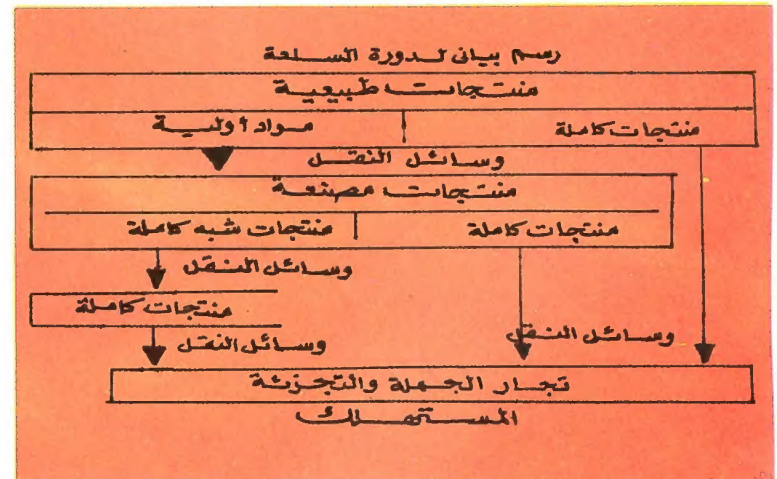 رسم بياني لدورة السلعة
منتجات طبيعية
منتجات كاملة
مواد أولية
وسائل النقل
منتجات مصنعة
منتجات كاملة
منتجات شبه كاملة
وسائل النقل
منتجات كاملة
وسائل النقل
وسائل النقل
تجار الجملة والتجزئة
المستهلك